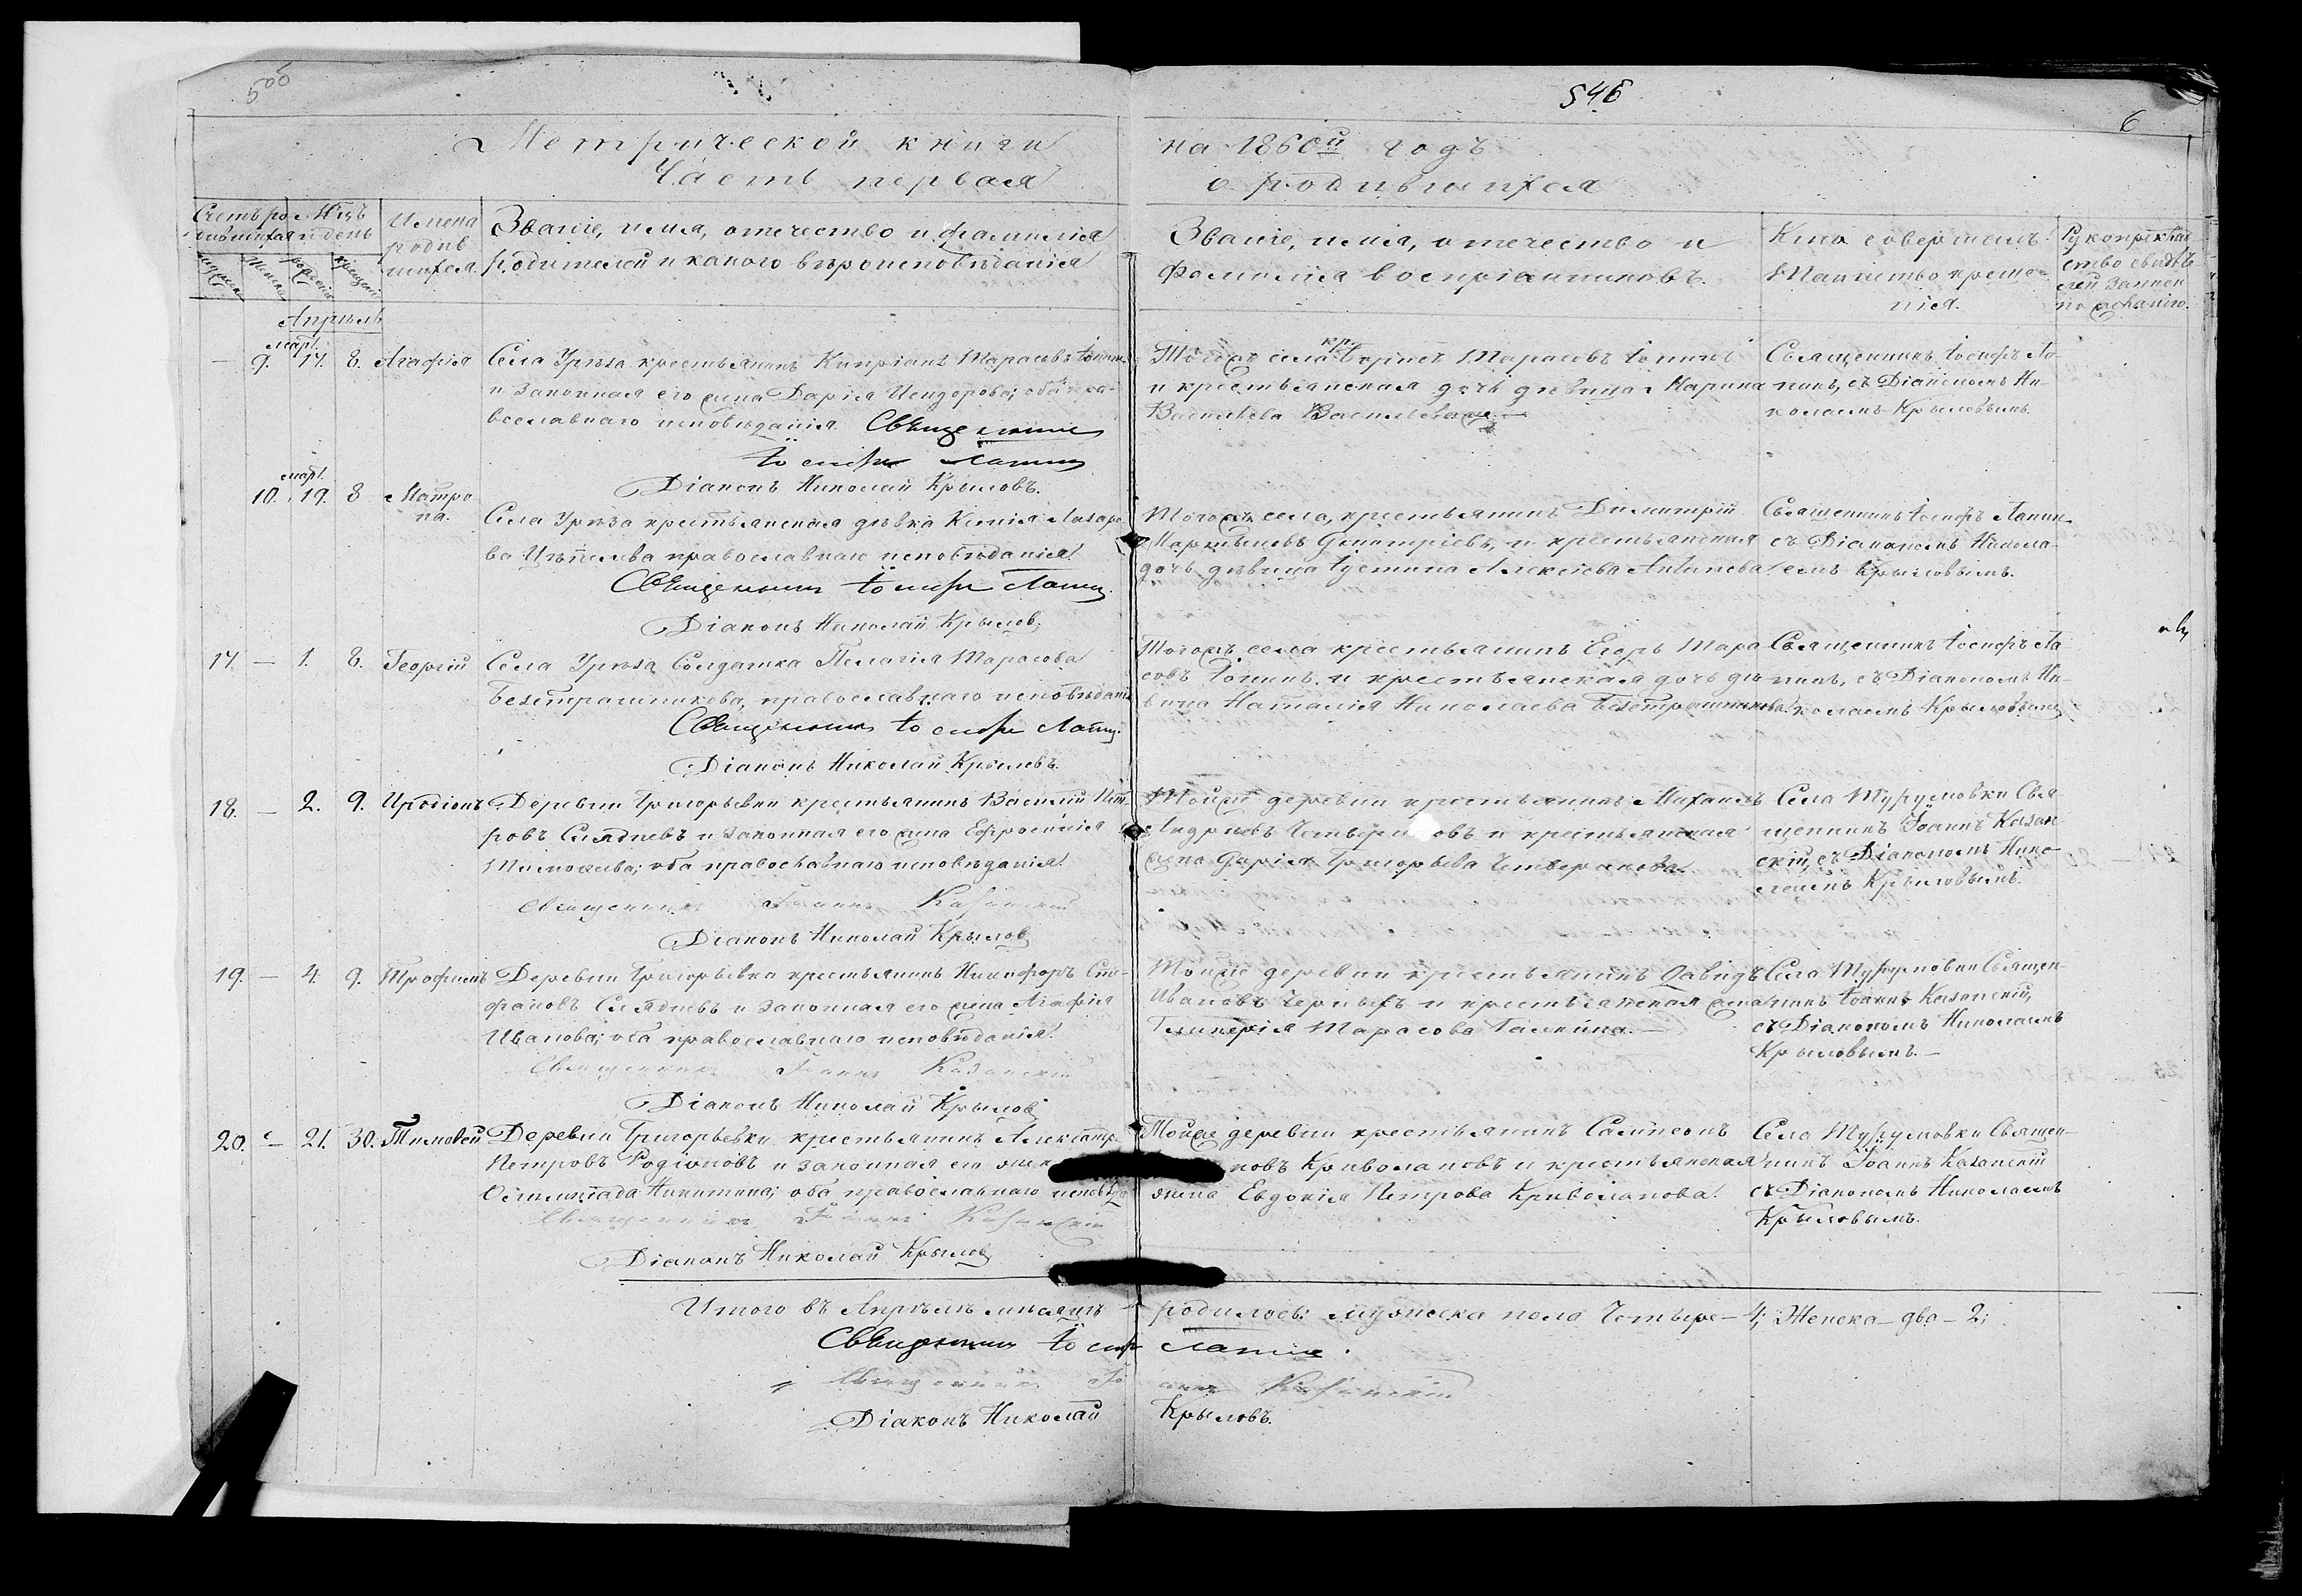 500
546
6
Метрической книги на 1860й годъ
Часть первая о родившихся
Счетъ родившихся
Мцъ и день
Имена родившихся
Званіе, имя, отечество и фамилія
родителей и какого вѣроисповѣданія
Званіе, имя, отечество и
фамилія воспріемниковъ.
Кто совершалъ
Таинство креще-
нія.
Апрѣль
март.
9. 17. 8. Агафія
Села Урѣза крестьянинъ Кипріанъ Тарасовъ
и законная его жена Дарія Исидорова; оба пра-
вославнаго исповѣданія. Священникъ
Іосифъ Лапинъ
Діаконъ Николай Крыловъ.
Тогожъ села кр. Тарасовъ
и крестьянская дочь дѣвица Марина
Васильева
Священникъ Іосифъ Ла-
пинъ, съ Діакономъ Ни-
колаемъ Крыловымъ.
март.
10. 19. 8 Матро
на.
Села Урѣза крестьянская дѣвка Ксенія Лазаре-
ва православнаго исповѣданія.
Священникъ Іосифъ Лапинъ
Діаконъ Николай Крыловъ
Тогожъ села, крестьянинъ Димитрій
и крестьянская
дочь дѣвица Іустина Алексіева
Священникъ Іосифъ Лапин
съ Діакономъ Никола-
емъ Крыловымъ.
17. — 1. 8. Георгій
Села Урѣза Солдатка Пелагія Тарасова
Безстрашникова, православнаго исповѣданія
Священникъ Іосифъ Лапинъ
Діаконъ Николай Крыловъ.
Тогожъ села крестьянинъ Егоръ Тара
совъ и крестьянская дочь дѣ-
вица Наталія Николаева Безстрашникова
Священникъ Іосифъ Ла
пинъ, съ Діакономъ Ни-
колаемъ Крыловымъ
18. — 2. 9. Иродіонъ
Деревни Григорьевки крестьянинъ Василій Пет-
ровъ Слядневъ и законная его жена Ефросинія
Тимофеева; оба православнаго исповѣданія.
Священникъ Іоаннъ Казанскій
Діаконъ Николай Крыловъ
Тойже деревни крестьянинъ Михаилъ
и крестьянская
жена Дарія Григорьева Четверикова.
Села Турумовки Свя-
щенникъ Іоаннъ Казан-
скій, съ Діакономъ Нико-
лаемъ Крыловымъ.
19. — 4. 9. Трофимъ
Деревни Григорьевки крестьянинъ Никифоръ Сте-
фановъ Слядневъ и законная его жена Агафія
Иванова; оба православнаго исповѣданія.
Священникъ Іоаннъ Казанскій
Діаконъ Николай Крыловъ
Тойже деревни крестьянинъ Давидъ
Ивановъ Черныхъ и крестьянская жена
Гликерія Тарасова Галкина. —
Села Турумовки Священ-
никъ Іоаннъ Казанскій,
съ Діакономъ Николаемъ
Крыловымъ. —
20. — 21. 30. Тимофей
Деревни Григорьевки крестьянинъ Александръ
Петровъ Родіоновъ и законная его жена
Никитина; оба православнаго исповѣда
Священникъ Іоаннъ Казанскій
Діаконъ Николай Крыловъ
Тойже деревни крестьянинъ Сампсонъ
Криволаповъ и крестьянская
жена Евдокія Петрова Криволапова.
Села Турумовки Священ-
никъ Іоаннъ Казанскій
съ Діакономъ Николаемъ
Крыловымъ.
Итого въ Апрѣлѣ мѣсяцѣ родилось: мужеска пола Четыре — 4; Женска — два — 2;
Священникъ Іосифъ Лапинъ.
Священникъ Іоаннъ Казанскій
Діаконъ Николай Крыловъ.